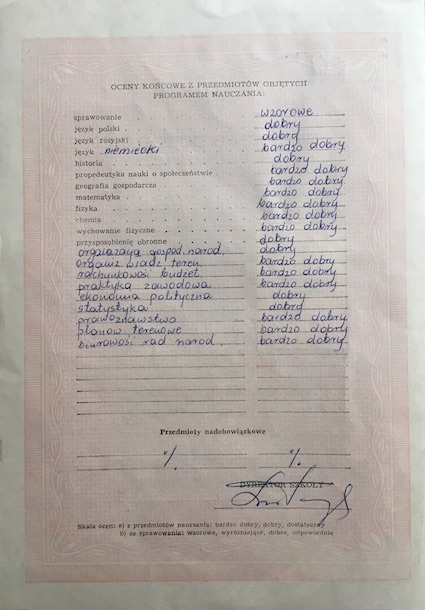 OCENY KOŃCOWE Z PRZEDMIOTÓW OBJĘTYCH
PROGRAMEM NAUCZANIA:
sprawowanie wzorowe
język polski dobry
język rosyjski dobry
język niemiecki bardzo dobry
historia dobry
propedeutyka nauki o społeczeństwie bardzo dobry
geografia gospodarcza bardzo dobry
matematyka bardzo dobry
fizyka bardzo dobry
chemia bardzo dobry
wychowanie fizyczne bardzo dobry
przysposobienie obronne dobry
gospod. narod. dobry
organiz. władz teren. bardzo dobry
rachunkowość budżet. bardzo dobry
praktyka zawodowa bardzo dobry
ekonomia polityczna dobry
statystyka dobry
prawoznawstwo bardzo dobry
planow. terenowe bardzo dobry
biurowość rad narod. bardzo dobry
Przedmioty nadobowiązkowe
%. %.
DYREKTOR SZKOŁY
Skala ocen: a) z przedmiotów nauczania: bardzo dobry, dobry, dostateczny
b) ze sprawowania: wzorowe, wyróżniające, dobre, odpowiednie